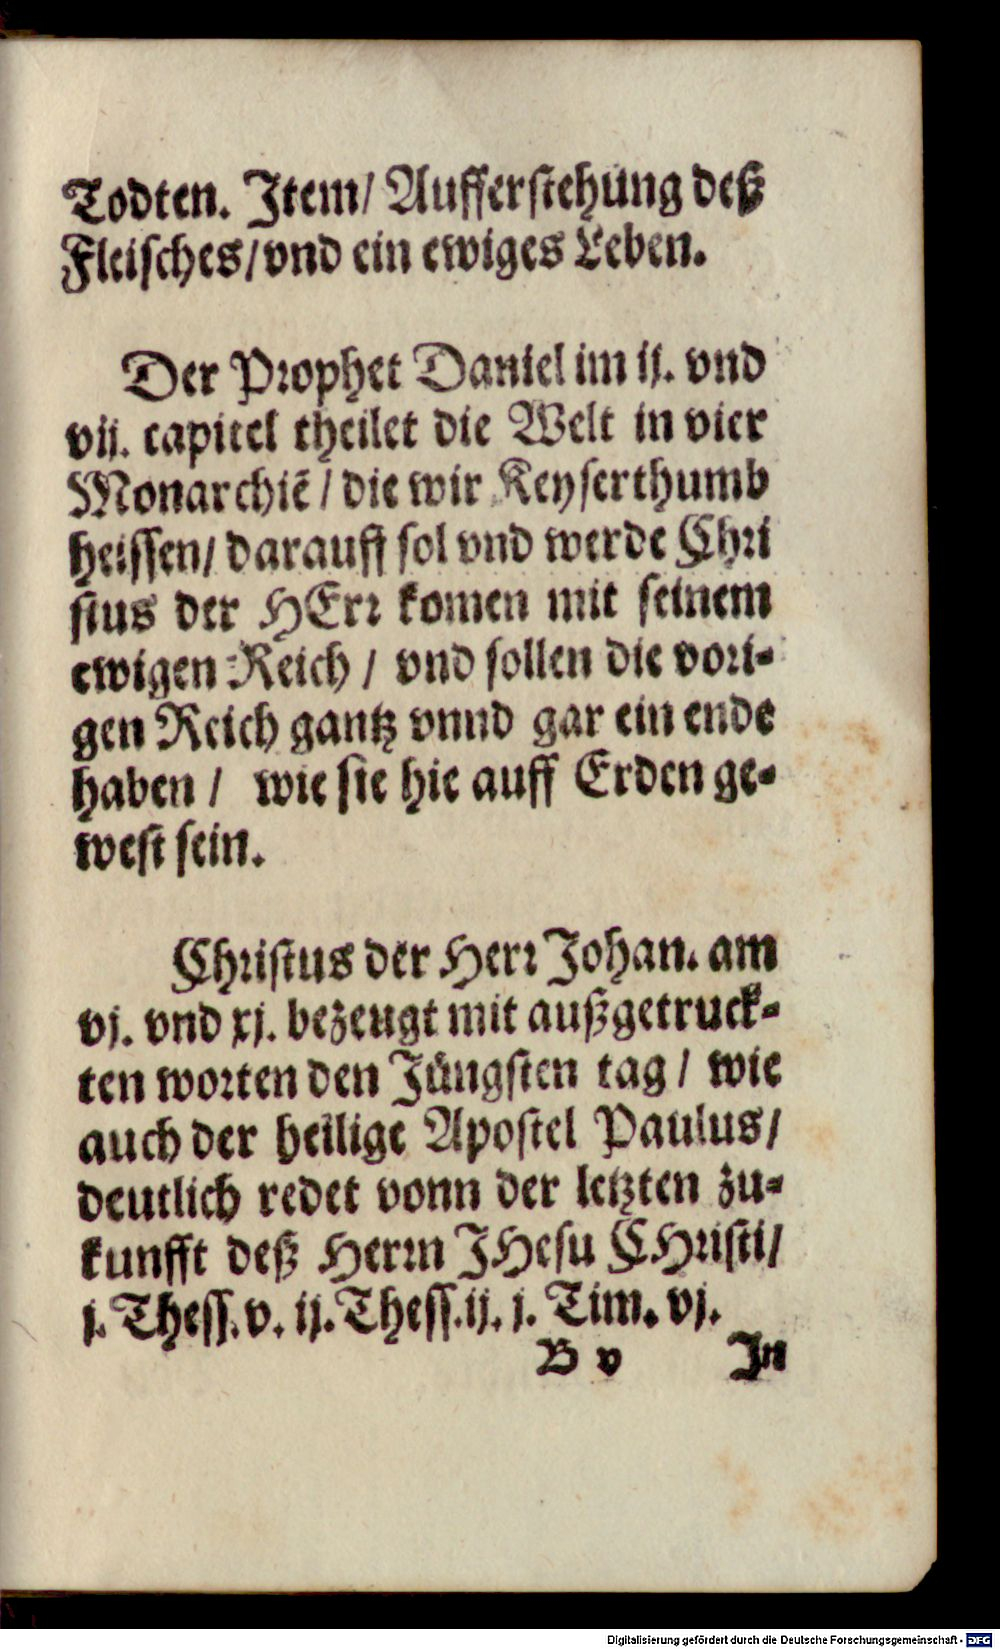 Todten. Item/ Aufferstehung deß
Fleisches/vnd ein ewiges Leben.
Der Prophet Daniel im ij. vnd
vij. capitel theilet die Welt in vier
Monarchiẽ / die wir Keyserthumb
heissen/ darauff sol vnd werde Chri
stus der HErr komen mit seinem
ewigen Reich / vnd sollen die vori-
gen Reich gantz vnnd gar ein ende
haben / wie sie hie auff Erden ge-
west sein.
Christus der Herr Johan. am
vj. vnd xj. bezeugt mit außgetruck-
ten worten den Jüngsten tag / wie
auch der heilige Apostel Paulus/
deutlich redet vonn der letzten zu-
kunfft deß Herrn JHesu CHristi/
j. Thess. v. ij. Thess. ij. j. Tim. vj.
B v In
Digitalisierung gefördert durch die Deutsche Forschungsgemeinschaft - DFG